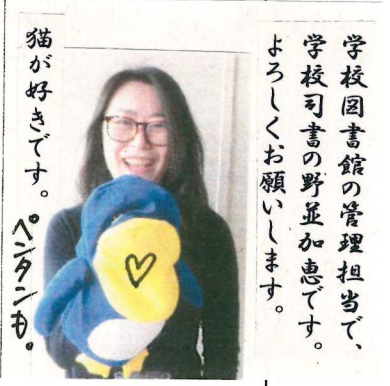 学校図書館の管理担当で、
学校司書の野並加恵です。
よろしくお願いします。
猫が好きです。
ペンタンも。